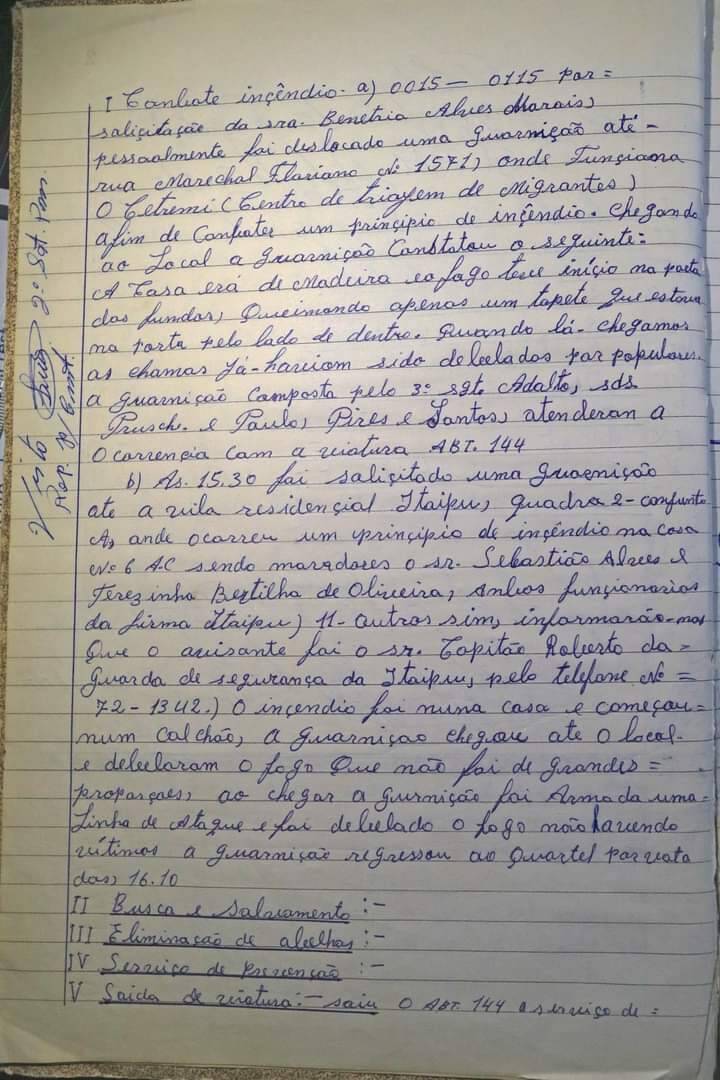 I Combate inçêndio. a) 0015 — 0115 por =
saliçitação da sra. Benetria Alves Marais,
pessoalmente fai deslocado uma guarnição até -
rua Marechal Flariano Nº 1571, onde Funçiaona
O Cetremi (Centro de triagem de Migrantes)
afim de Conbater um prinçipio de inçêndio. chegando
ao Local a guarnição Canstatau o seguinte:
A Casa erá de Madeira e o fogo teve início na porta
dos fundos, Queimando apenas um tapete que estava
na porta pelo lado de dentro. Quando lá- chegamos
as chamas Já-haviam sido debelados por populares.
a guarnição Composta pelo 3º sgtº Adalto, sds.
Prusch. e Paulo, Pires e Santos, atenderan a
Ocorrencia Cam a viatura ABT. 144
b) As. 15.30 foi saliçitado uma guarnição
ate a vila residençial Itaipu, quadra 2 - conjunto
A, onde ocorreu um prinçipio de inçêndio na casa
Nº 6 A.C sendo moradores o sr. Sebastião Alves e
Terezinha Bertilha de Oliveira, anbos funçionarios
da firma Itaipu) 11- Outros sim, informarão-nos
Que o avisante foi o sr. Capitão Roberto da =
Guarda de segurança da Itaipu, pelo telefone Nº =
72 - 1342.) O inçendio foi numa casa e começou =
num Calchão, a guarniçao chegou até o local.
e debelaram o fogo Que não foi de grandes =
proporções, ao chegar a gurnição foi Armada uma =
Linha de Ataque e foi debelado o fogo não havendo
vítimas a guarnição regressou ao Quartel por vota
das, 16.10
II Busca e Salvamento :-
III Eliminação de abelhas :-
IV Serviço de prevenção :-
V Saida de viatura :- saiu O ABT. 144 a serviço de =
Visto 2º Sgt. Pm.
Rep. p/ Cmt.